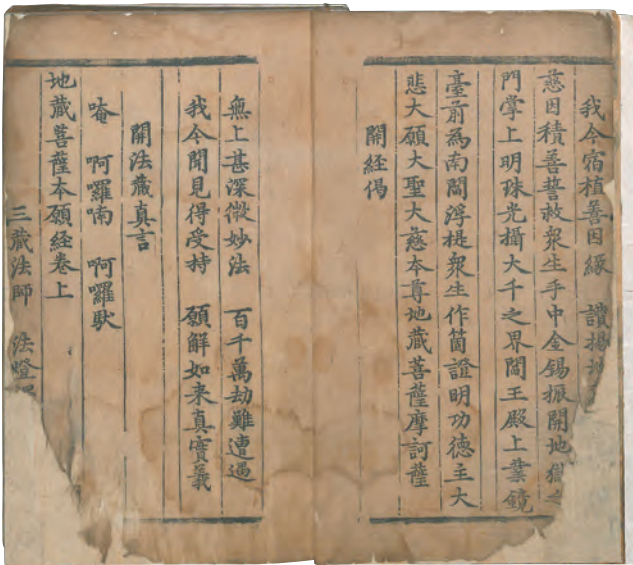 我今宿植善因緣　讃揚地
慈因積善誓救衆生手中金錫振開地獄之
門掌上明珠光攝大千之界閻王殿上業鏡
臺前為南閻浮提衆生作箇證明功德主大
悲大願大聖大慈本尊地藏菩薩摩訶薩
開經偈
無上甚深微妙法　百千萬劫難遭遇
我今聞見得受持　願解如来真實義
開法藏真言
唵　啊囉喃　啊囉馱
地藏菩薩本願経卷上
三藏法師　法燈